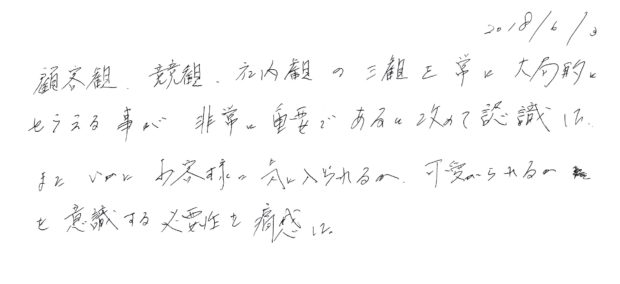 2018/6/3
顧客観、競観、社内観の三観を常に大局的に
とらえる事が非常に重要であると改めて認識した。
また いかに お客様に気に入られるか、可愛がられるか
を意識する必要性を痛感した。